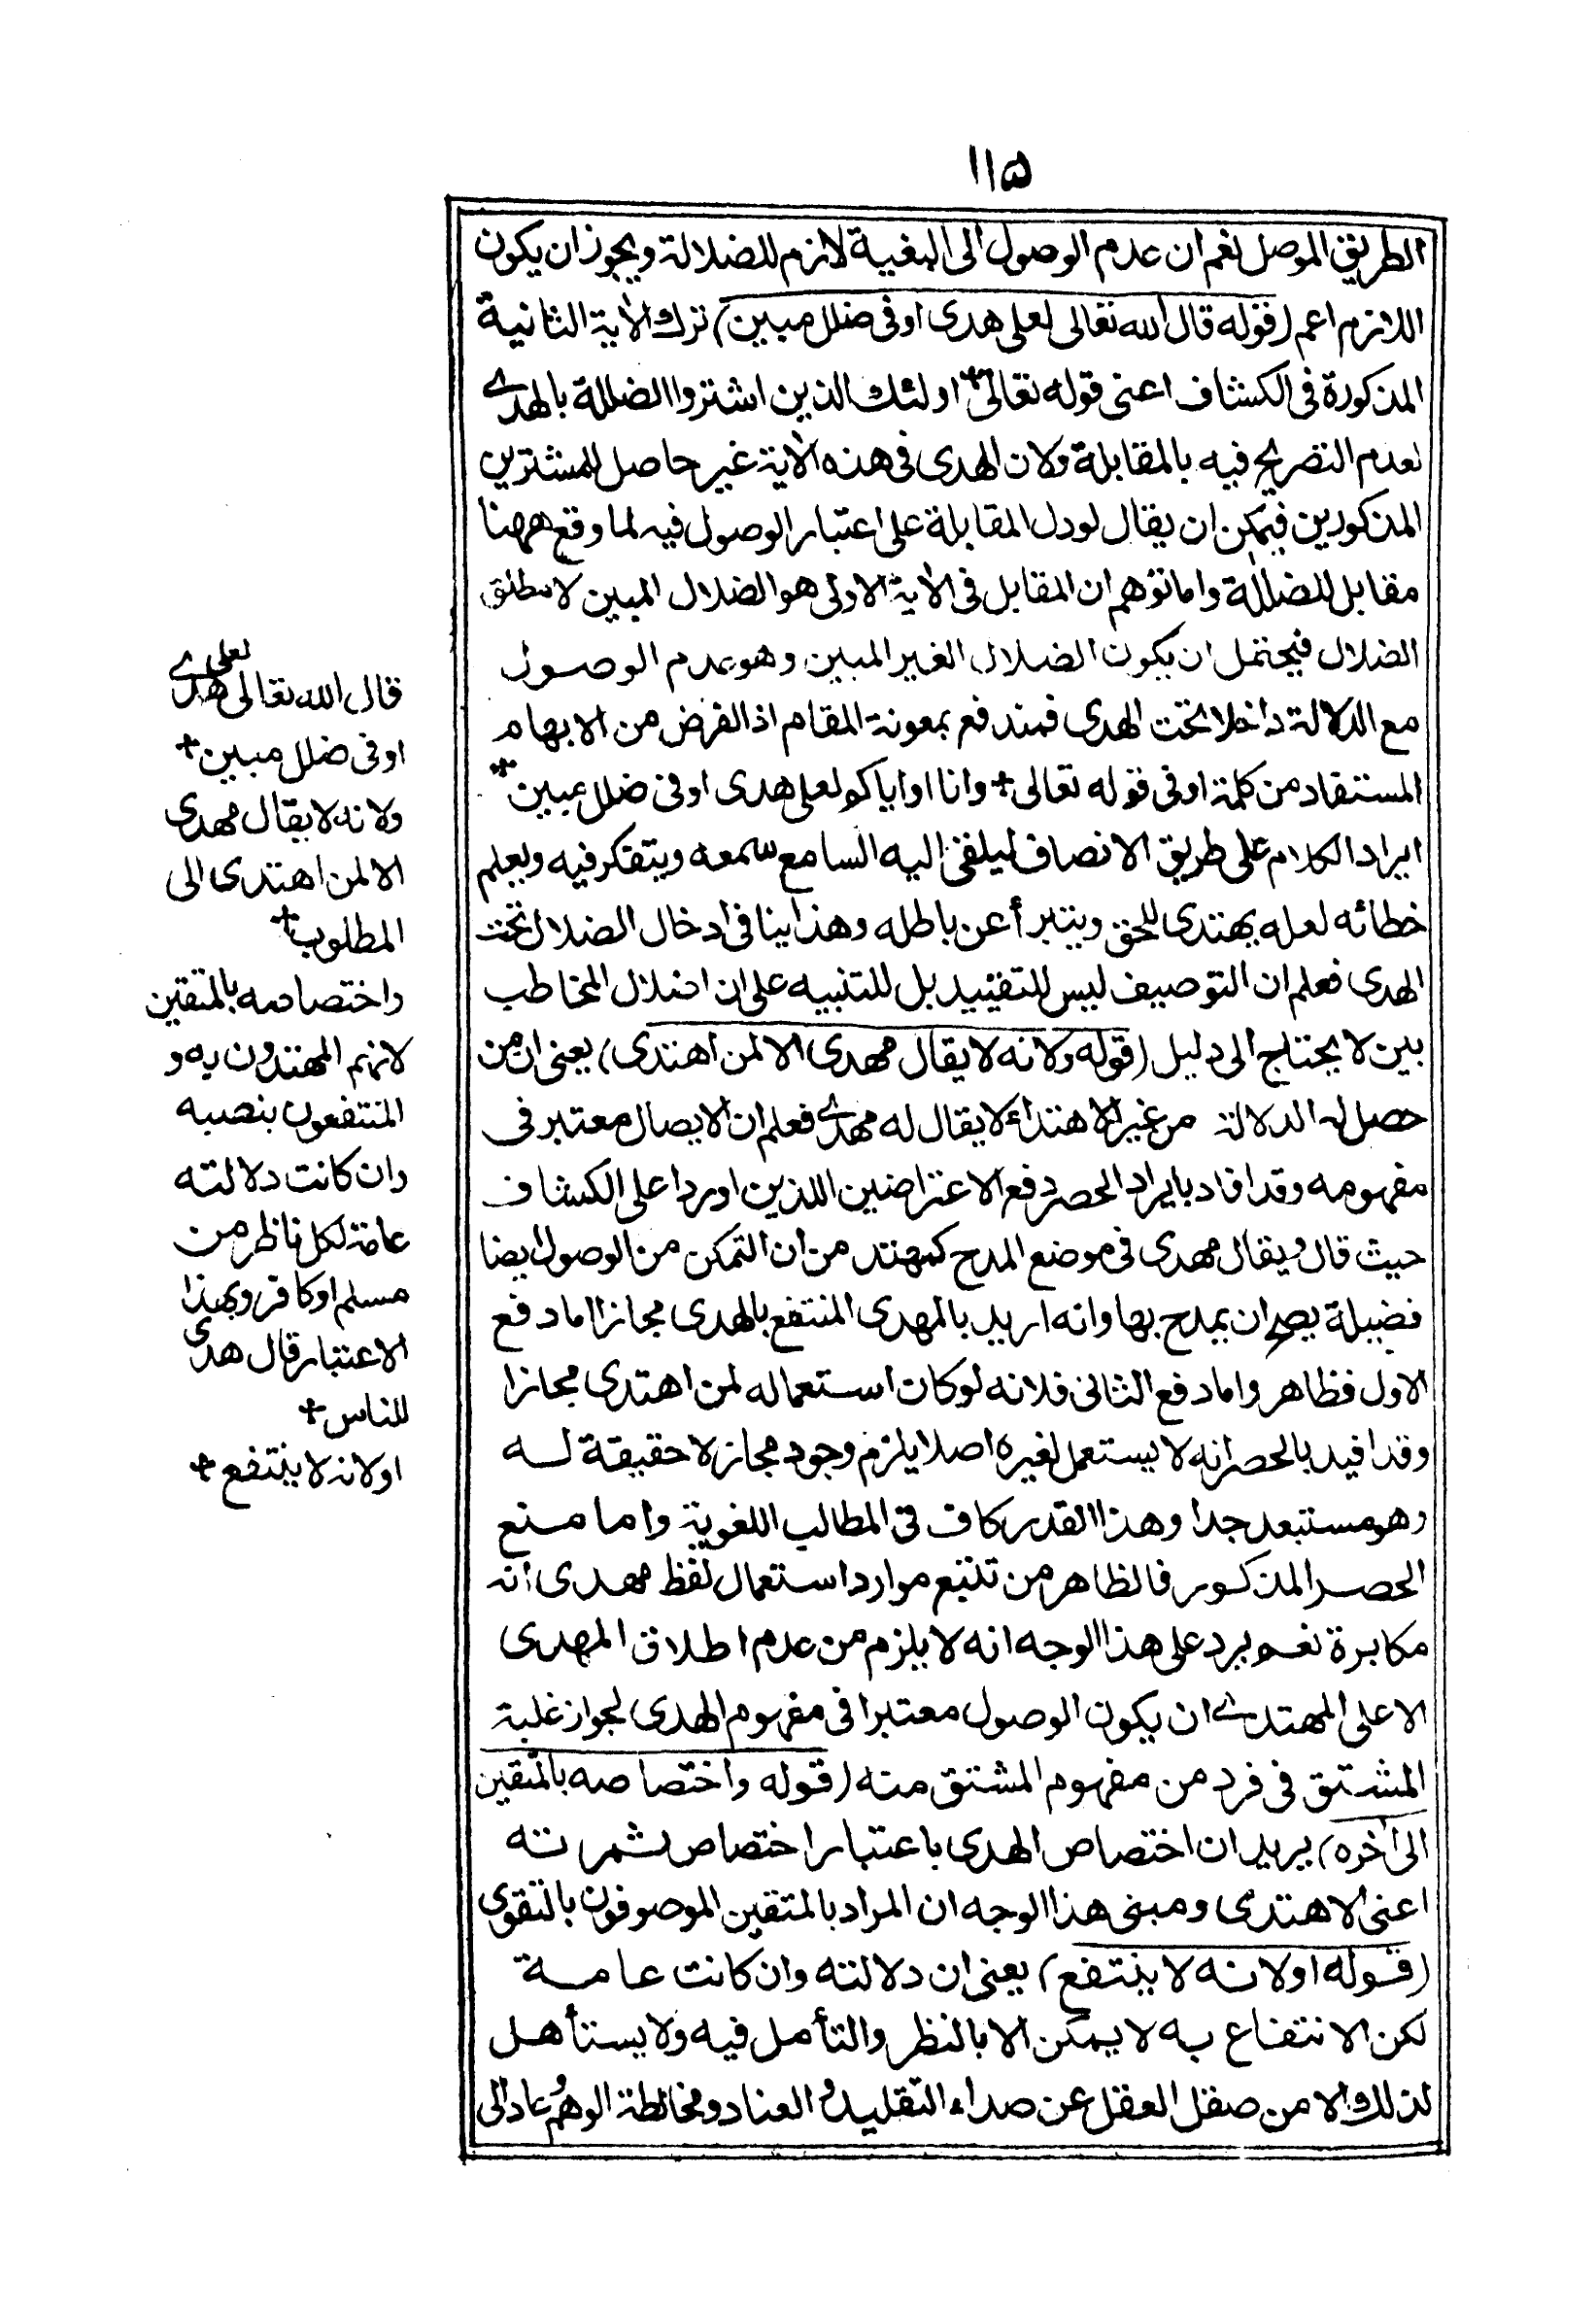 ١١۵
الطريق الموصل نعم ان عدم الوصول الى البغية لازم للضلالة ويجوز ان يكون
اللازم اعم (قوله قال الله تعالى لعلى هدى او فى ضلل مبين) ترك الأية الثانية
المذكورة فى الكشاف اعنى قوله تعالى + اولئك الذين اشتروا الضللة بالهدے
لعدم التصريح فيه بالمقابلة ولان الهدى فى هذه الأية غير حاصل للمشترين
المذكورين فيمكن ان يقال لو دل المقابلة على اعتبار الوصول فيه لما وقع ههنا
مقابل للضللة واما توهم ان المقابل فى الأية الاولى هو الضلال المبين لا مطلق
الضلال فيحتمل ان يكون الضلال الغير المبين وهو عدم الوصول
مع الدلالة داخلا تحت الهدى فمندفع بمعونة المقام اذ الغرض من الابهام
المستفاد من كلمة او فى قوله تعالى + وانا او اياكم لعلى هدى او فى ضلل مبين +
ايراد الكلام على طريق الانصاف ليلقى اليه السامع سمعه ويتفكر فيه ويعلم
خطائه لعله يهتدى للحق ويتبرأ عن باطله وهذا ينافى ادخال الضلال تحت
الهدى فعلم ان التوصيف ليس للتقييد بل للتنبيه على ان اضلال المخاطب
بين لا يحتاج الى دليل (قوله ولانه لا يقال مهدى الا لمن اهتدى) يعنى ان من
حصل له الدلالة من غير الاهتداء لا يقال له مهدے فعلم ان الايصال معتبر فى
مفهومه وقد افاد بايراد الحصر دفع الاعتراضين اللذين اوردا على الكشاف
حيث قال ويقال مهدى فى موضع المدح كمهتد من ان التمكن من الوصول ايضا
فضيلة يصح ان يمدح بها وانه اريد بالمهدى المنتفع بالهدى مجازا اما دفع
الاول فظاهر واما دفع الثانى فلانه لو كان استعماله لمن اهتدى مجازا
وقد افيد بالحصر انه لا يستعمل لغيره اصلا يلزم وجود مجاز لا حقيقة له
وهو مستبعد جدا وهذا القدر كاف فى المطالب اللغوية واما منع
الحصر المذكور فالظاهر من تتبع موارد استعمال لفظ مهدى انه
مكابرة نعم يرد على هذا الوجه انه لا يلزم من عدم اطلاق المهدى
الا على المهتدے ان يكون الوصول معتبرا فى مفهوم الهدى لجواز غلبة
المشتق فى فرد من مفهوم المشتق منه (قوله واختصاصه بالمتقين
الى أخره) يريد ان اختصاص الهدى باعتبار اختصاص ثمرته
اعنى الاهتدى ومبنى هذا الوجه ان المراد بالمتقين الموصوفون بالتقوى
(قوله او لانه لا ينتفع) يعنى ان دلالته وان كانت عامة
لكن الانتفاع به لا يمكن الا بالنظر والتأمل فيه ولا يستأهل
لذلك الا من صقل العقل عن صداء التقليد و العناد ومخالطة الوهم وعاد الى
قال الله تعالى لعلى هدے
او فى ضلل مبين +
ولانه لا يقال مهدى
الا لمن اهتدى الى
المطلوب +
واختصاصه بالمتقين
لانهم المهتدون به و
المنتفعون بنصبه
وان كانت دلالته
عامة لكل ناظر من
مسلم او كافر وبهذا
الاعتبار قال هدى
للناس +
او لانه لا ينتفع +